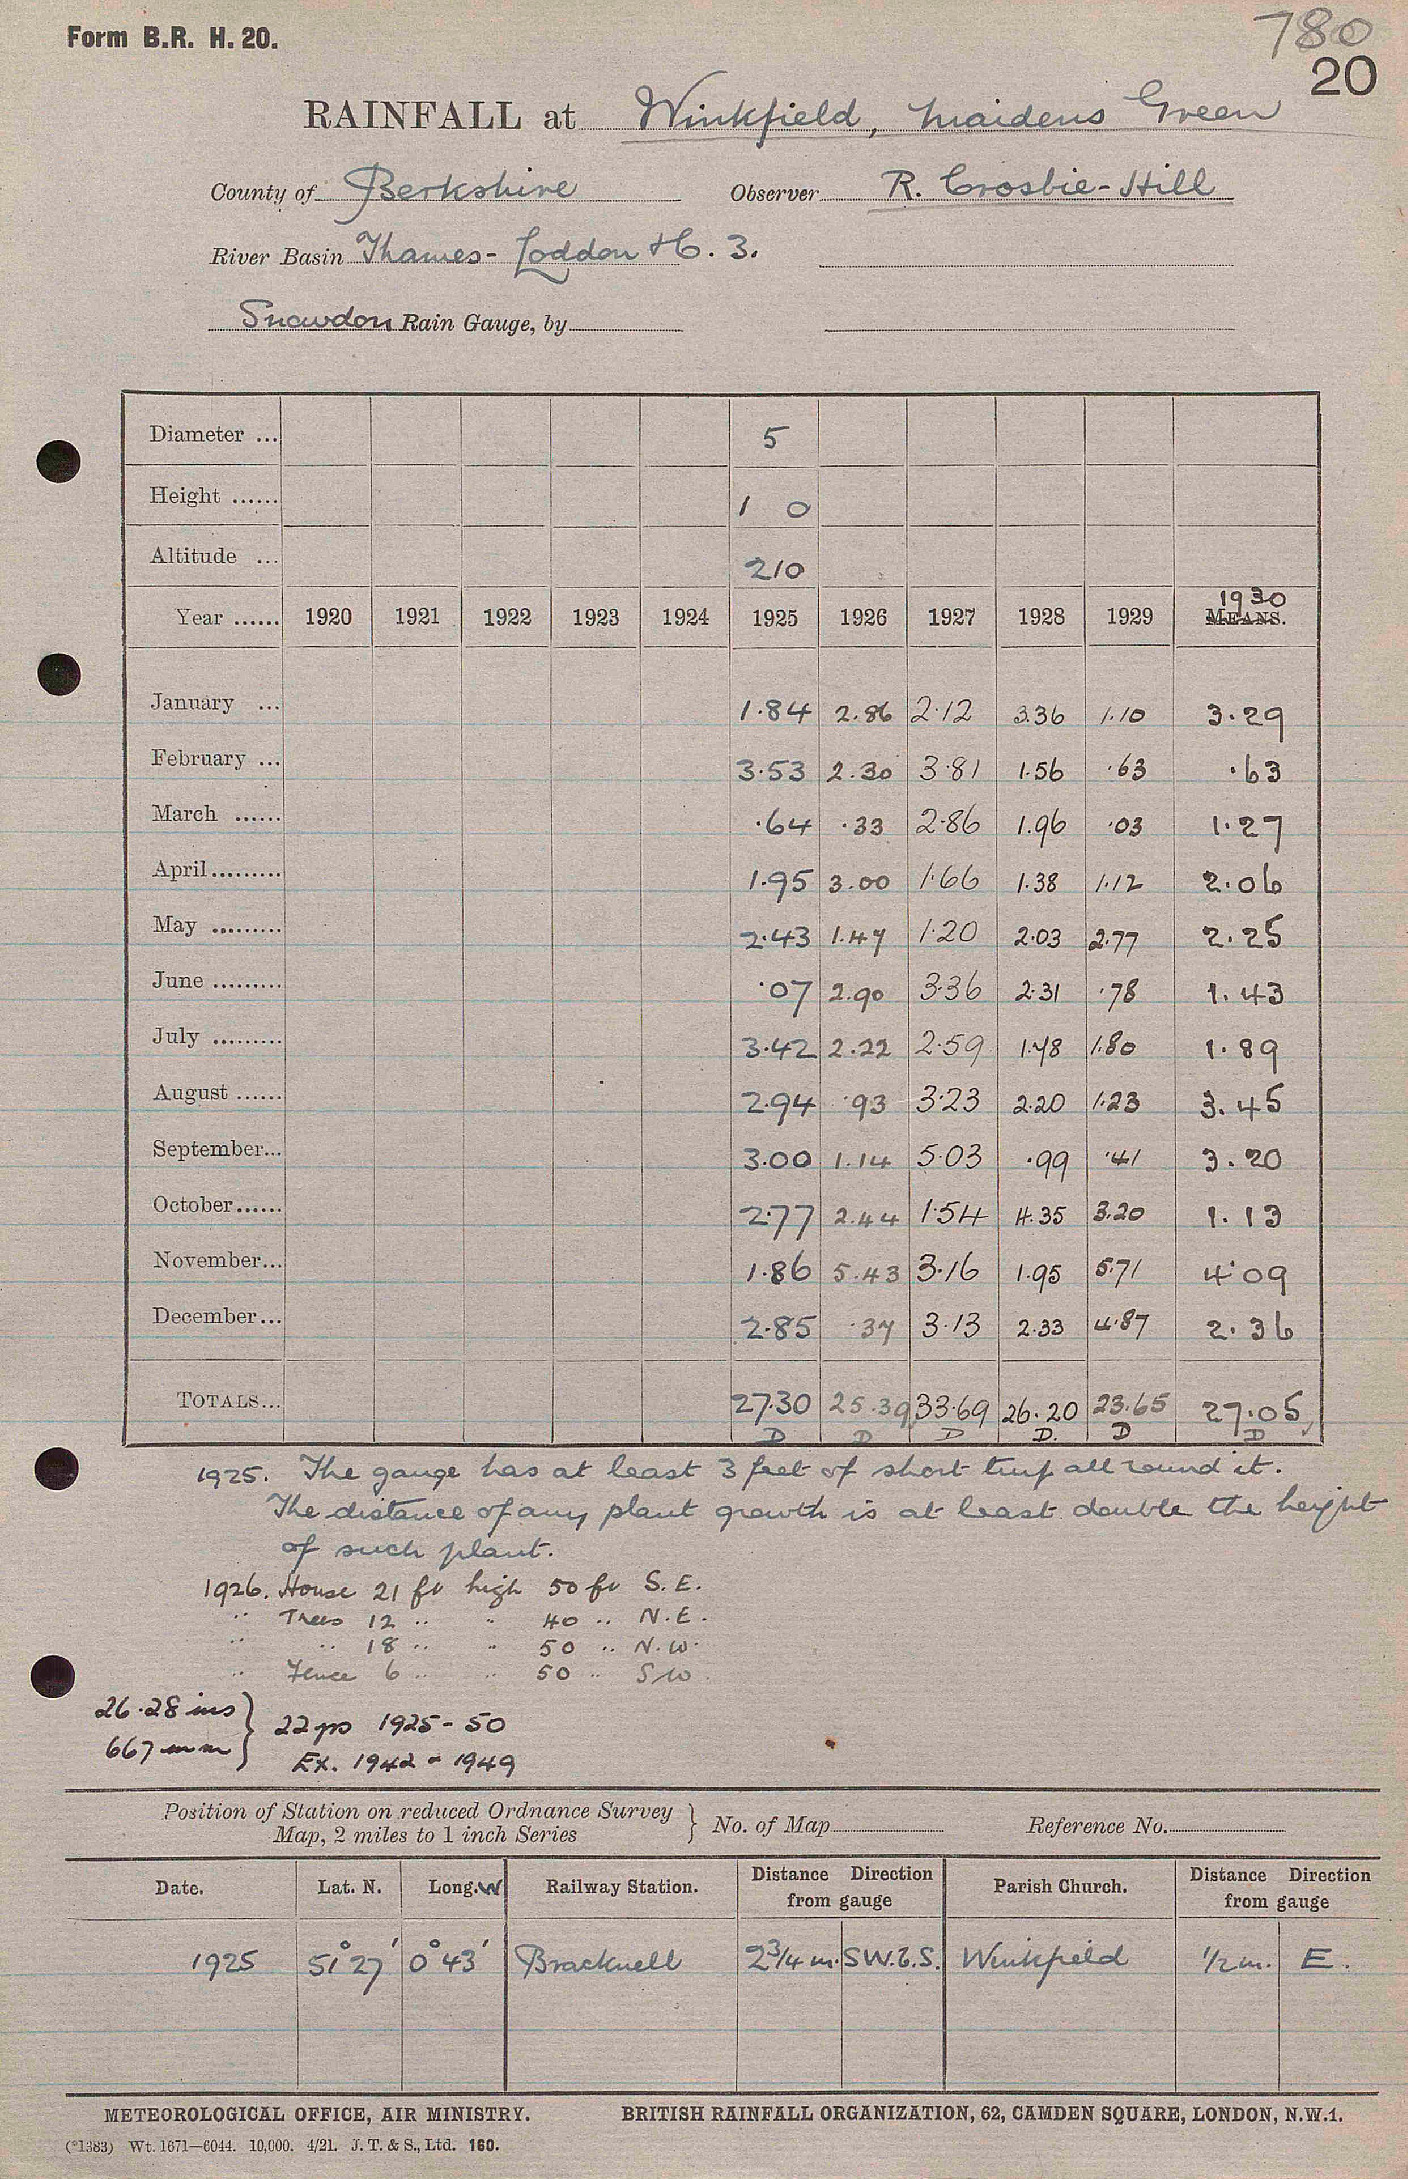 Form B.R. H. 20.
780
20
RAINFALL at Winkfield, Maidens Green
County of Berkshire Observer R. Crosbie-Hill
River Basin Thames- Loddon &C. 3.
Snowdon Rain Gauge, by
Diameter ... 5
Height ...... 1 0
Altitude ... 210
Year ...... 1920 1921 1922 1923 1924 1925 1926 1927 1928 1929 1930 MEANS.
January ... 1.84 2.86 2.12 3.36 1.10 3.29
February ... 3.53 2.30 3.81 1.56 .63 .63
March ...... .64 .33 2.86 1.96 .03 1.27
April......... 1.95 3.00 1.66 1.38 1.12 2.06
May ......... 2.43 1.47 1.20 2.03 2.77 2.25
June ......... .07 2.90 3.36 2.31 .78 1.43
July ......... 3.42 2.22 2.59 1.78 1.80 1.89
August ...... 2.94 .93 3.23 2.20 1.23 3.45
September... 3.00 1.14 5.03 .99 .41 3.20
October...... 2.77 2.44 1.54 4.35 3.20 1.13
November... 1.86 5.43 3.16 1.95 5.71 4.09
December... 2.85 .37 3.13 2.33 4.87 2.36
TOTALS... 27.30 25.39 33.69 26.20 23.65 27.05
D D D D. D D
1925. The gauge has at least 3 feet of short turf all round it.
The distance of any plant growth is at least double the height
of such plant.
1926. House 21 ft high 50 ft S.E.
" Trees 12 " " 40 " N.E.
" " 18 " " 50 " N.W.
" Fence 6 " " 50 " SW.
26.28 ins } 22 yrs 1925-50
667 mm } Ex. 1942 - 1949
Position of Station on reduced Ordnance Survey
Map, 2 miles to 1 inch Series } No. of Map Reference No.
Date. Lat. N. Long. W Railway Station. Distance Direction from gauge Parish Church. Distance Direction from gauge
1925 51° 27' 0° 43' Bracknell 2 3/4 m. SW.b.S. Winkfield 1/2 m. E.
METEOROLOGICAL OFFICE, AIR MINISTRY. BRITISH RAINFALL ORGANIZATION, 62, CAMDEN SQUARE, LONDON, N.W.1.
(*1383) Wt. 1671—6044. 10,000. 4/21. J. T. & S., Ltd. 160.